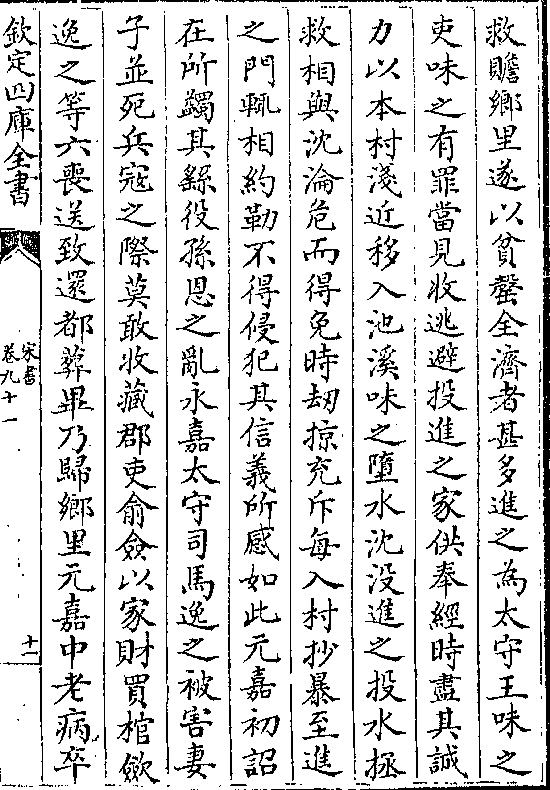 救贍鄉里遂以貧罄全濟者甚多進之為太守王味之
吏味之有罪當見收逃避投進之家供奉經時盡其誠
力以本村淺近移入池溪味之墮水沈没進之投水拯
救相與沈淪危而得免時刼掠充斥每入村抄暴至進
之門輒相約勒不得侵犯其信義所感如此元嘉初詔
在所蠲其繇役孫恩之亂永嘉太守司馬逸之被害妻
子並死兵寇之際莫敢收藏郡吏俞僉以家財買棺斂
逸之等六喪送致還都葬畢乃歸鄉里元嘉中老病卒
欽定四庫全書
宋書
卷九十一
十一